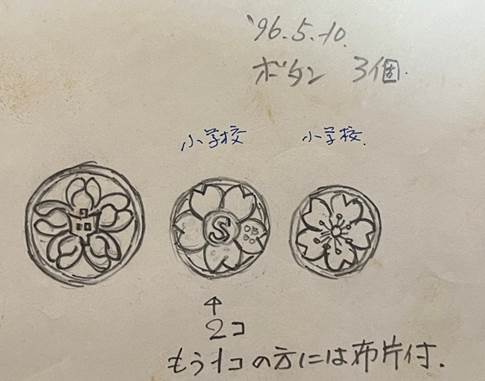 '96.5.10.
ボタン 3個.
小学校 小学校.
S
↑
2コ
もう1コの方には布片付.